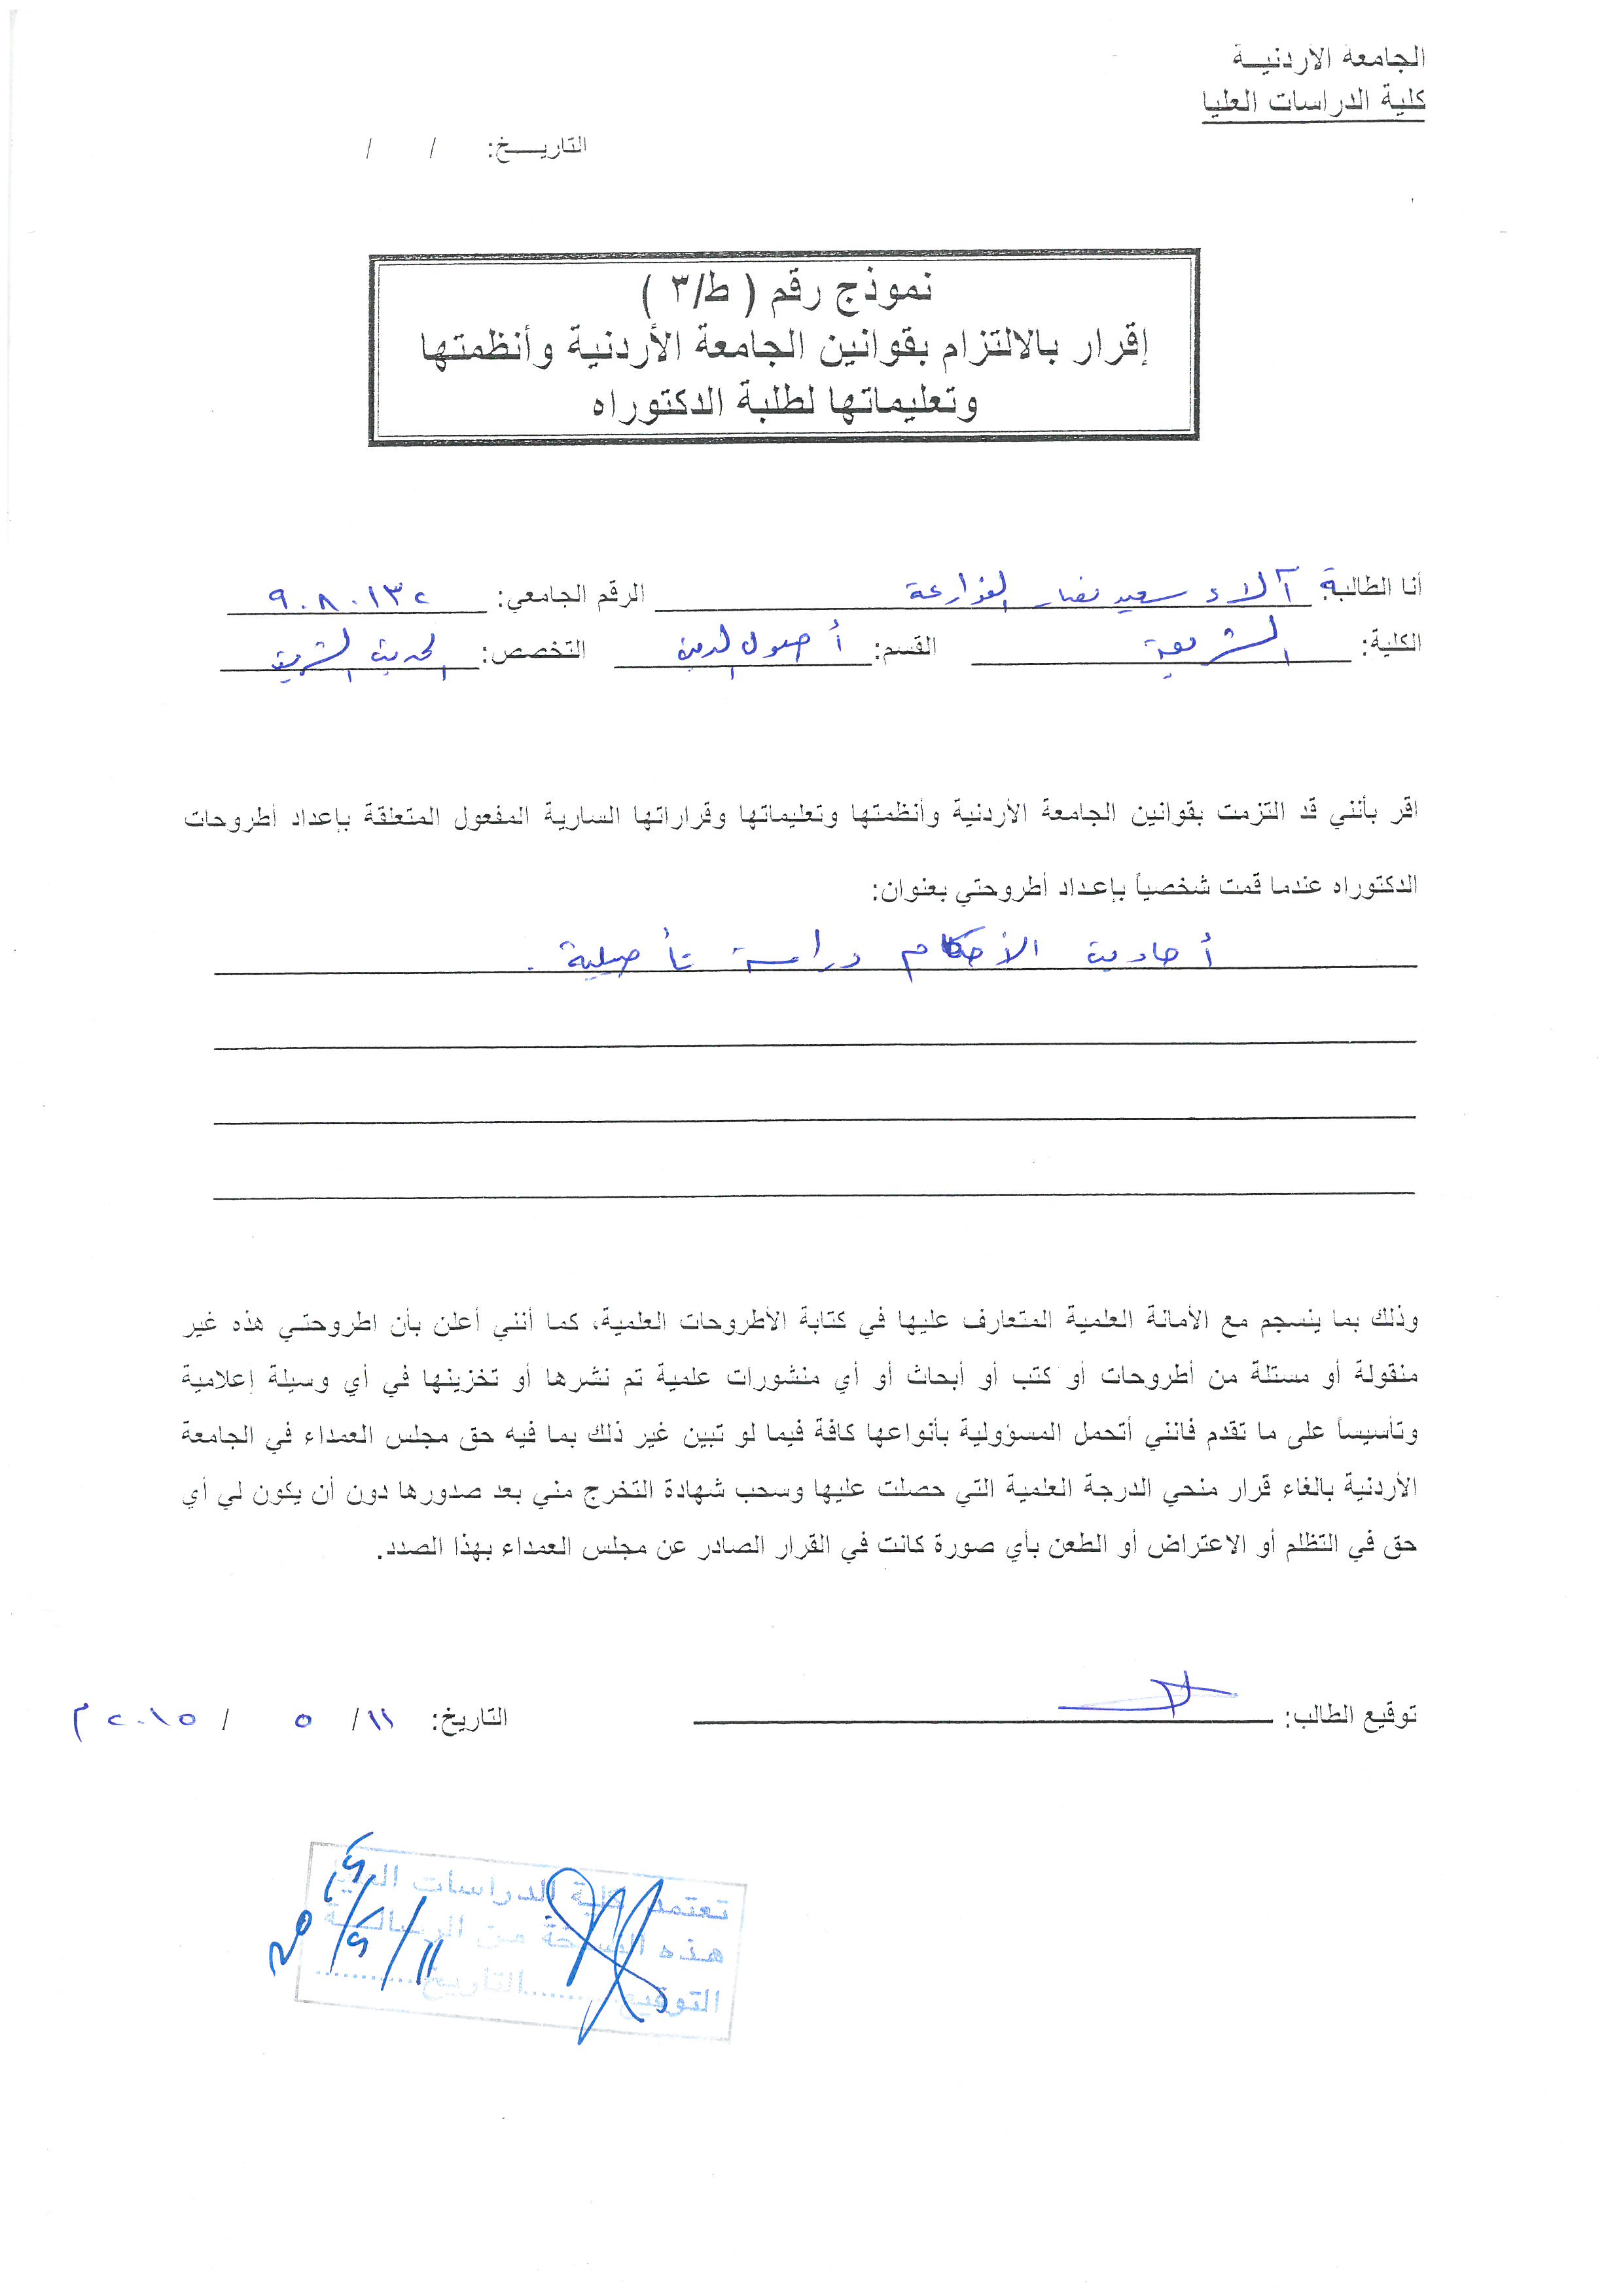 الجامعة الأردنيـــة
كلية الدراسات العليا
التاريـــخ: / /
نموذج رقم ( ط/٣ )
إقرار بالالتزام بقوانين الجامعة الأردنية وأنظمتها
وتعليماتها لطلبة الدكتوراه
أنا الطالبة: آلاء سعيد نصار الفوارعة الرقم الجامعي: ٩٠٨٠١٣٢
الكلية: الشريعة القسم: أصول الدين التخصص: الحديث الشريف
اقر بأنني قد التزمت بقوانين الجامعة الأردنية وأنظمتها وتعليماتها وقراراتها السارية المفعول المتعلقة بإعداد أطروحات
الدكتوراه عندما قمت شخصياً بإعداد أطروحتي بعنوان:
أحاديث الأحكام دراسة تأصيلية .
وذلك بما ينسجم مع الأمانة العلمية المتعارف عليها في كتابة الأطروحات العلمية، كما أنني أعلن بأن اطروحتي هذه غير
منقولة أو مستلة من أطروحات أو كتب أو أبحاث أو أي منشورات علمية تم نشرها أو تخزينها في أي وسيلة إعلامية
وتأسيساً على ما تقدم فانني أتحمل المسؤولية بأنواعها كافة فيما لو تبين غير ذلك بما فيه حق مجلس العمداء في الجامعة
الأردنية بالغاء قرار منحي الدرجة العلمية التي حصلت عليها وسحب شهادة التخرج مني بعد صدورها دون أن يكون لي أي
حق في التظلم أو الاعتراض أو الطعن بأي صورة كانت في القرار الصادر عن مجلس العمداء بهذا الصدد.
توقيع الطالب: التاريخ: ١١/ ٥ / ٢٠١٥ م
تعتمد كلية الدراسات العليا
هذه النسخة من الرسالـــة
التوقيع..........التاريخ..........